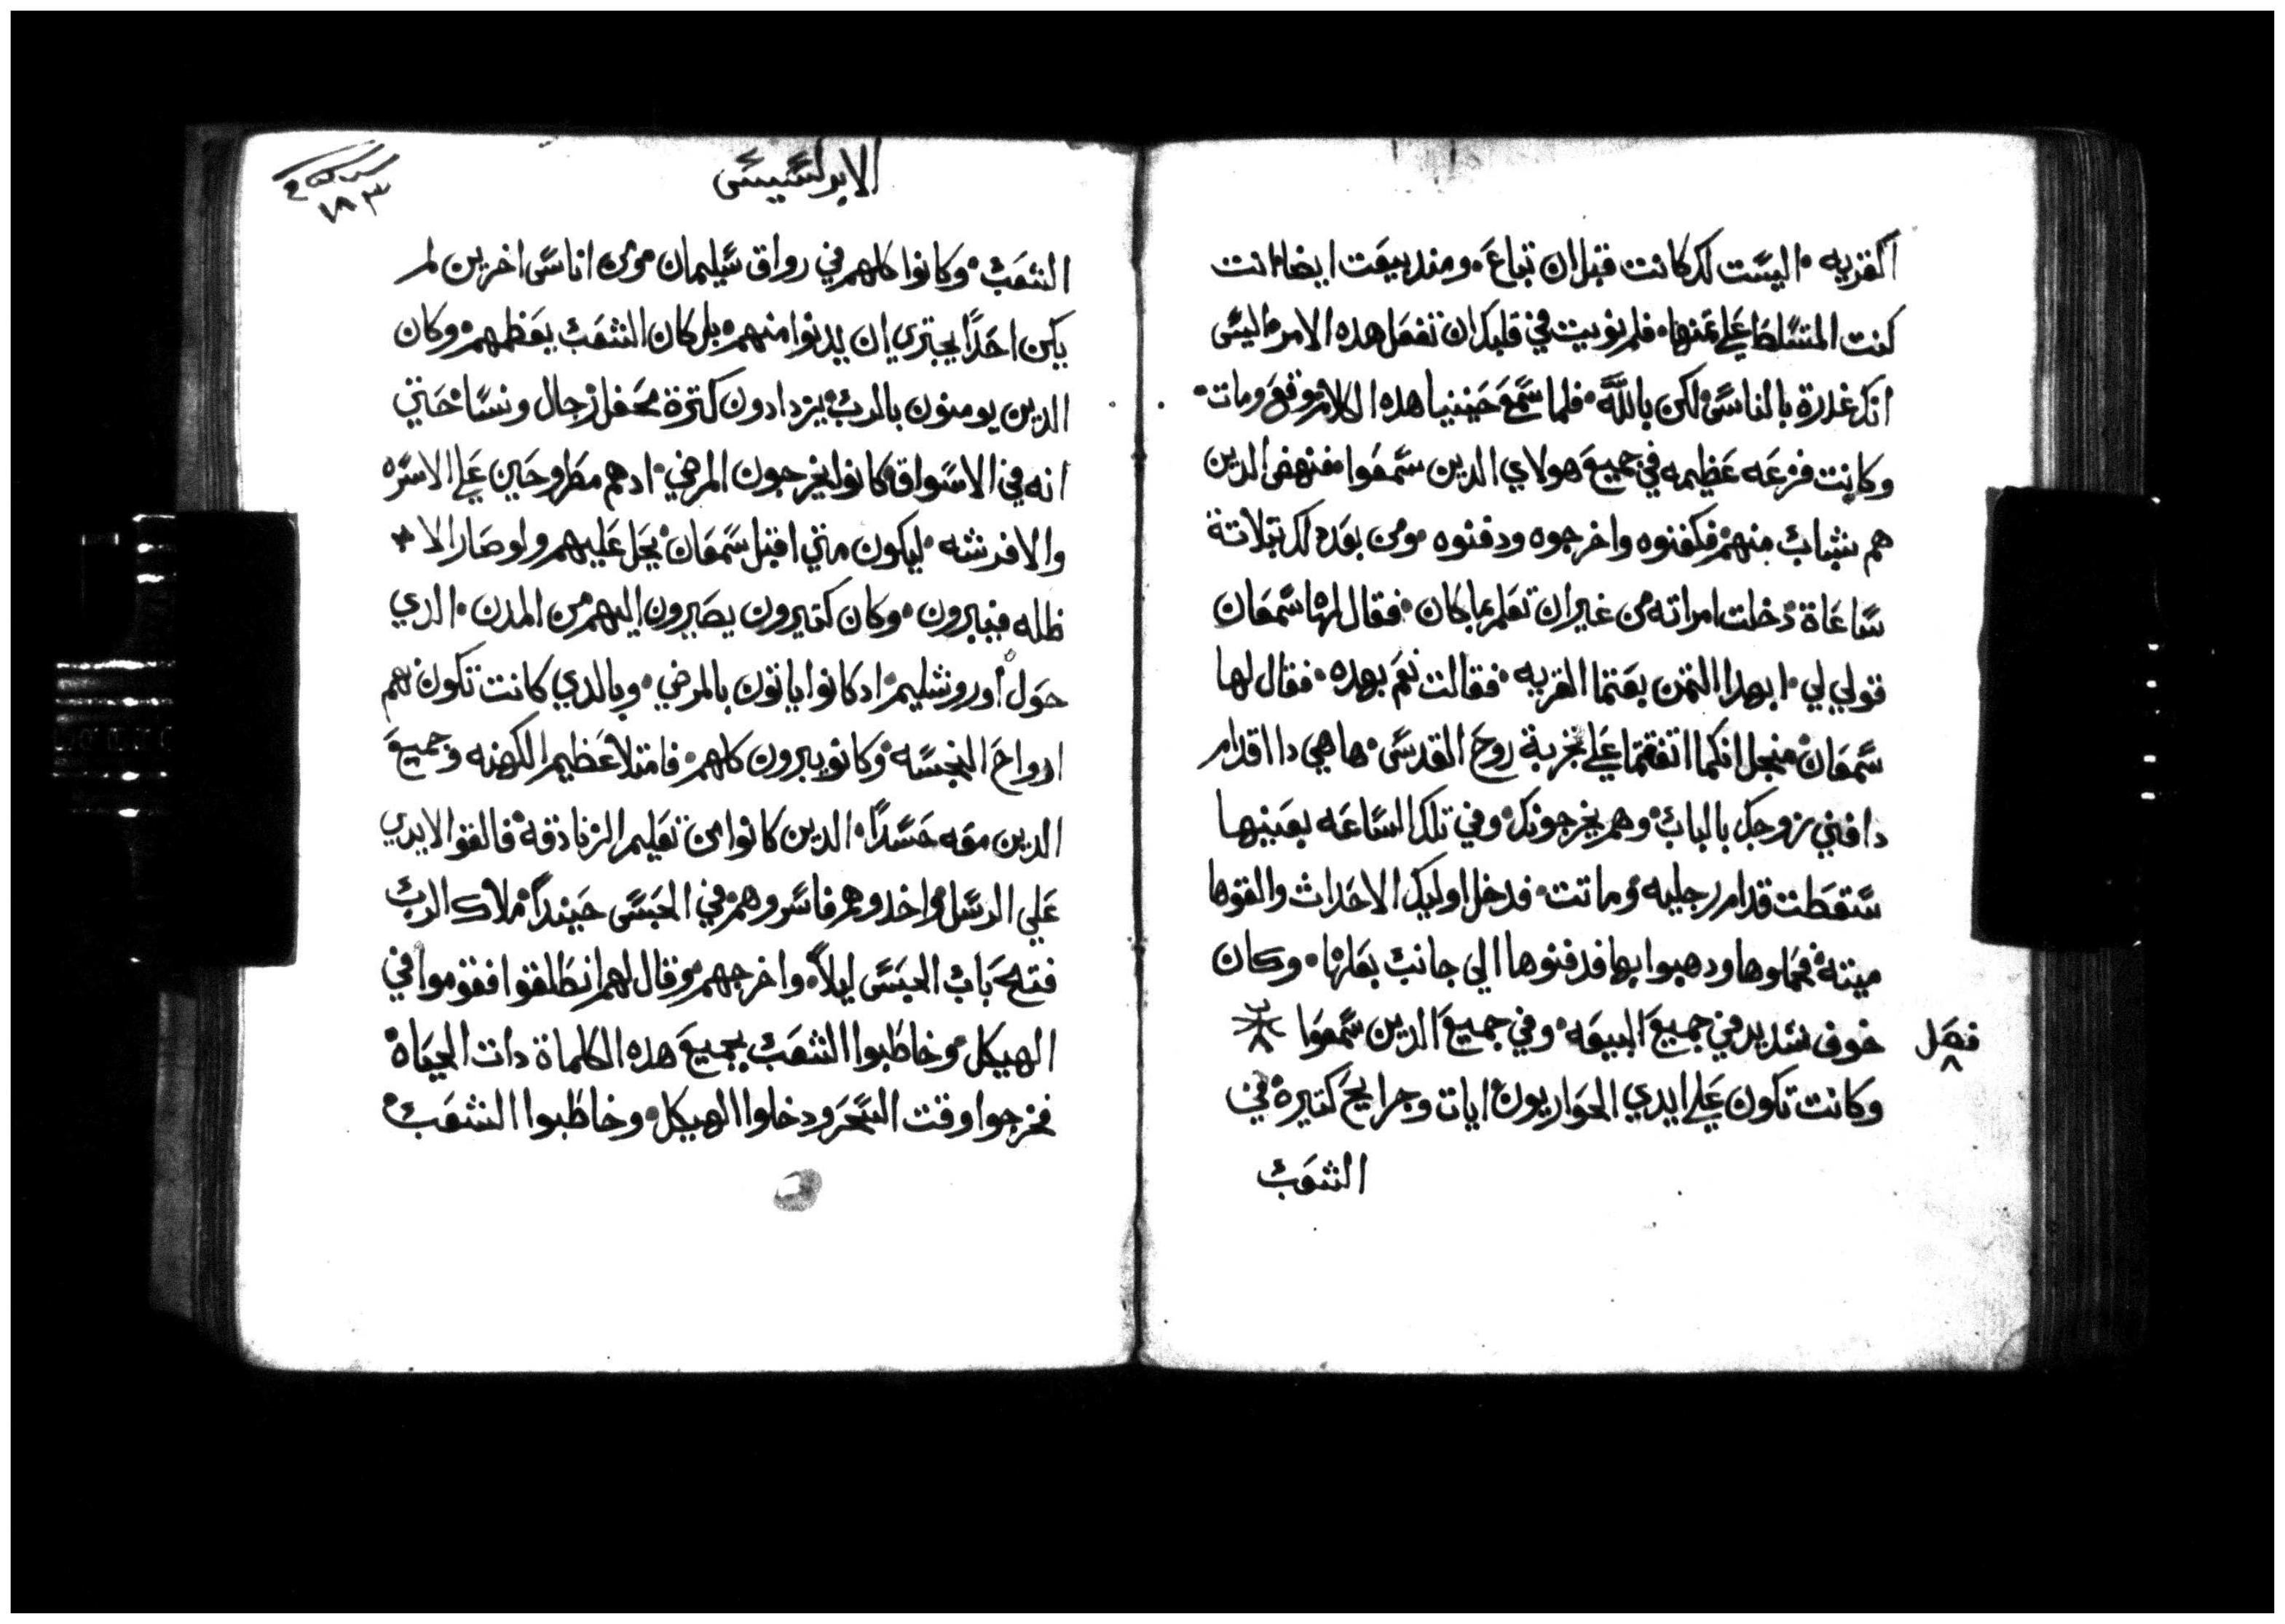 القريه· اليست لك كانت قبل ان تباع· ومند بيعت ايضا انت
كنت المتسلط علي تمنها· فلم نويت في قلبك ان تفعل هده الامر· اليس
انك غدرة بالناس· لكن بالله· فلما سمع حينيا هده الكلام وقع ومات·
وكانت فزعه عظيمه في جميع هولاي الدين سمعوا· فنهض الدين
هم شباب منهم فكفنوه واخرجوه ودفنوه· ومن بعد دلك بتلاتة
ساعاة دخلت امراته من غير ان تعلم بما كان· فقال لها سمعان
قولي لي· ابهدا التمن بعتما القريه· فقالت نعم بهده· فقال لها
سمعان منجل انكما اتفقتما علي تجربة روح القدس· ها هي دا اقدام
دافني زوجك بالباب· وهم يخرجونك· وفي تلك الساعه بعينيها
سقطت قدام رجليه وماتت· فدخل اوليك الاحداث والقوها
ميتة· فحملوها ودهبوا بها فدفنوها الي جانب بعلها· وكان
خوف شديد في جميع البيعه· وفي جميع الدين سمعوا
فصل
٨
وكانت تكون علي ايدي الحواريون ايات وجرايح كتيرة في
الشعب
الابركسيس
١٨٣
الشعب· وكانوا كلهم في رواق سليمان· ومن اناس اخرين لم
يكن احدًا يجتري ان يدنوا منهم· بل كان الشعب يعظمهم· وكان
الدين يومنون بالرب· يزدادون كترة محفل رجال ونسا· حتي
انه في الاسواق كانوا يخرجون المرضي· ادهم مطروحين علي الاسره
والافرشه· ليكون متي اقبل سمعان· يحل عليهم ولو صار الا
ظله فيبرون· وكان كتيرون يصيرون اليهم من المدن· الدي
حول أوروشليم· اد كانوا ياتون بالمرضي· وبالدي كانت تكون بهم
ارواح النجسه· وكانو يبرون كلهم· فامتلا عظيم الكهنه وجميع
الدين معه حسدًا· الدين كانوا من تعليم الزنادقة· فالقوا الايدي
علي الرسل· واخدوهم فاسروهم في الحبس حينيدًا· ملاك الرب
فتح باب الحبس ليلاً· واخرجهم· وقال لهم انطلقوا فقوموا في
الهيكل· وخاطبوا الشعب بجميع هده الكلماة دات الحياة·
فخرجوا وقت السحر ودخلوا الهيكل· وخاطبوا الشعب·